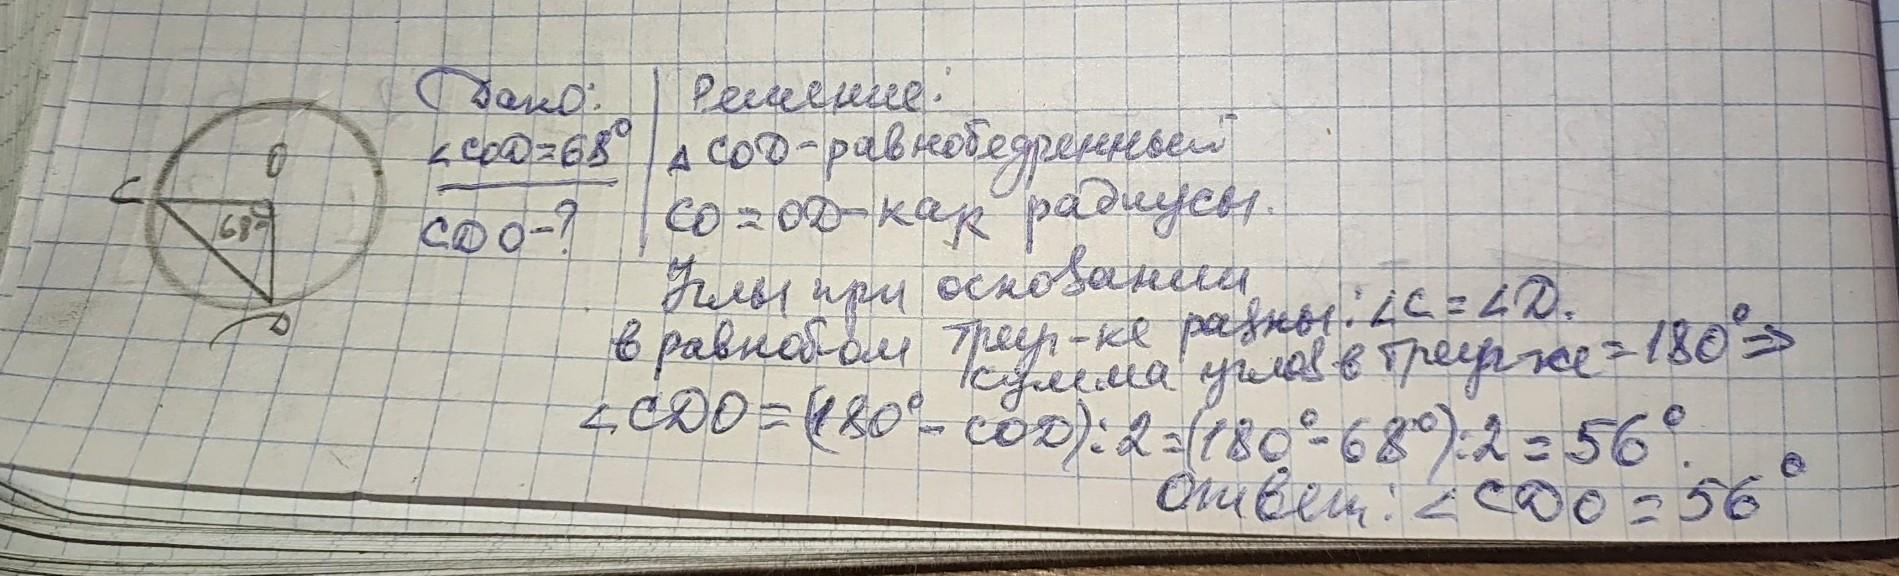 Дано:
∠COD=68°
CDO-?
O
C
68°
D
Решение:
△ COD-равнобедренный
CO = OD-как радиусы.
Углы при основании
в равноб-ом треуг-ке равны: ∠C = ∠D.
сумма углов в треуг-ке = 180° ⇒
∠CDO = (180° - COD):2 = (180°-68°):2 = 56°.
Ответ: ∠CDO = 56°